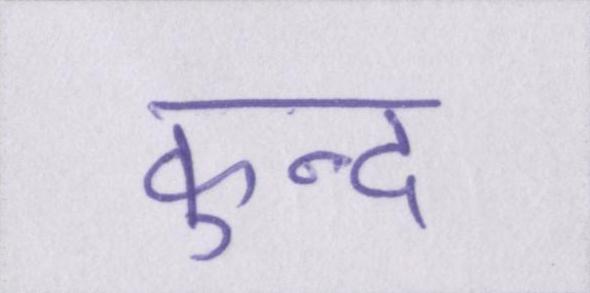 कुन्द